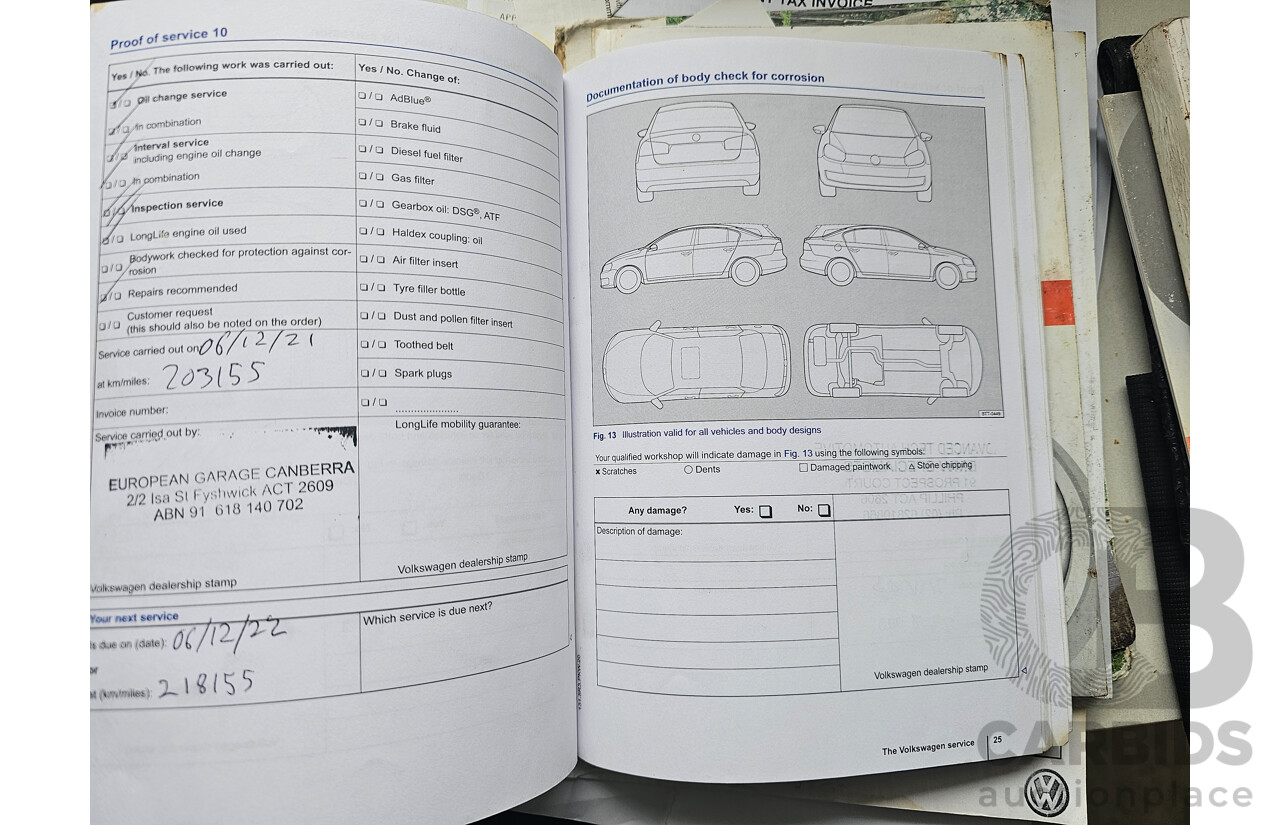 TAX INVOICE
Proof of service 10
Yes / No. The following work was carried out:
Yes / No. Change of:
Oil change service
In combination
Interval service
including engine oil change
In combination
Inspection service
LongLife engine oil used
Bodywork checked for protection against cor-
rosion
Repairs recommended
Customer request
(this should also be noted on the order)
Service carried out on 06/12/21
at km/miles: 203155
Invoice number:
Service carried out by:
EUROPEAN GARAGE CANBERRA
2/2 Isa St Fyshwick ACT 2609
ABN 91 618 140 702
Volkswagen dealership stamp
AdBlue®
Brake fluid
Diesel fuel filter
Gas filter
Gearbox oil: DSG®, ATF
Haldex coupling: oil
Air filter insert
Tyre filler bottle
Dust and pollen filter insert
Toothed belt
Spark plugs
LongLife mobility guarantee:
Volkswagen dealership stamp
Your next service
is due on (date): 06/12/22
or
at (km/miles): 218155
Which service is due next?
Documentation of body check for corrosion
Fig. 13 Illustration valid for all vehicles and body designs
Your qualified workshop will indicate damage in Fig. 13 using the following symbols:
x Scratches ○ Dents □ Damaged paintwork △ Stone chipping
Any damage? Yes: No:
Description of damage:
Volkswagen dealership stamp
The Volkswagen service 25
CARBIDS
auctionplace